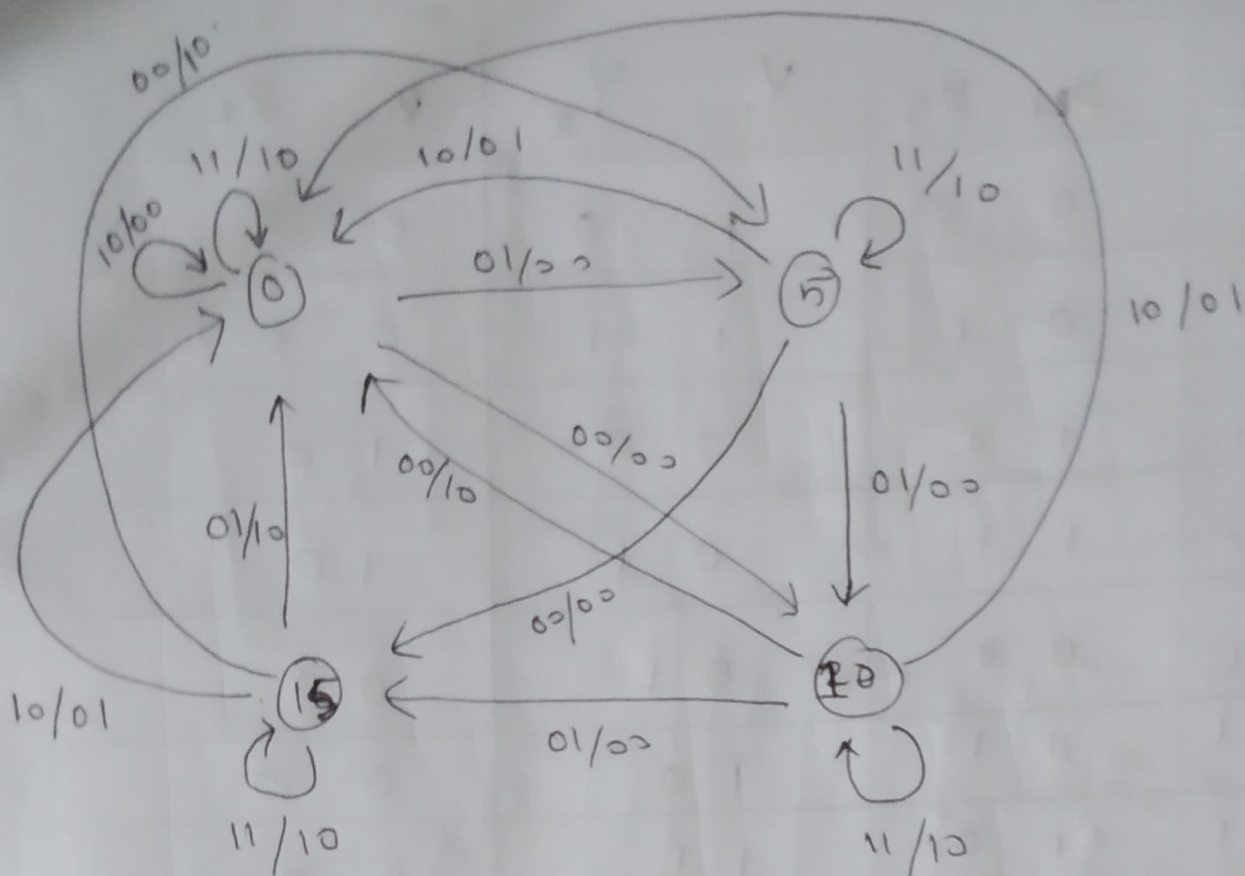 00/10
11/10
10/01
11/10
10/00
0
01/00
5
10/01
00/00
00/10
01/00
01/10
00/00
15
10
10/01
01/00
11/10
11/10